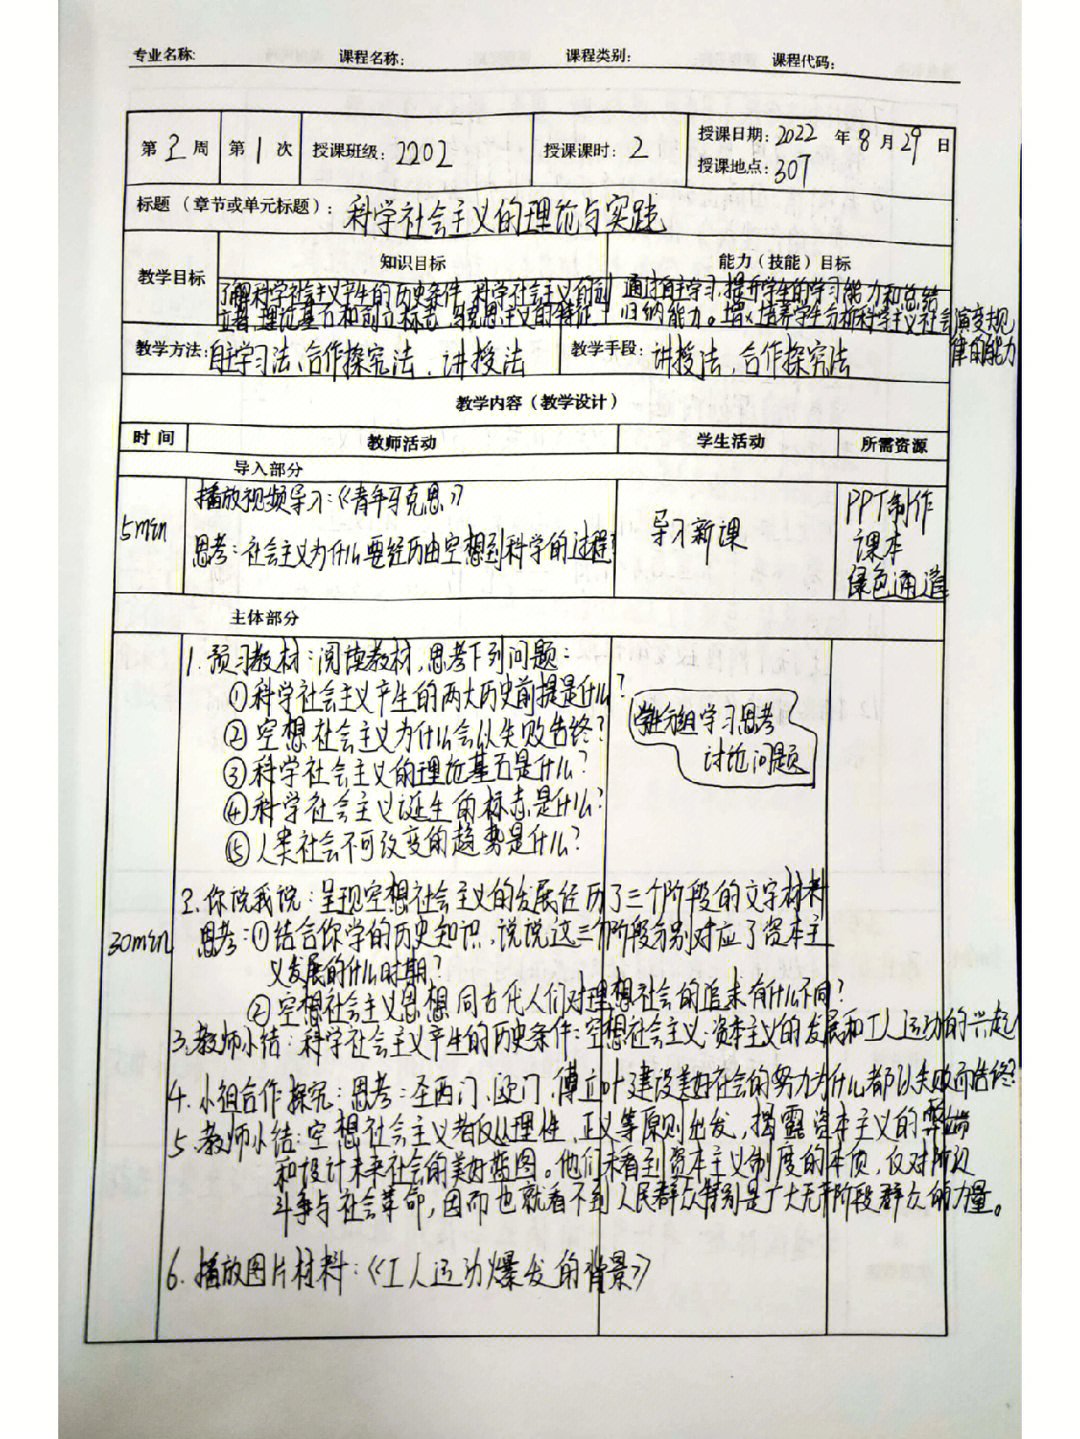 专业名称: 课程名称: 课程类别: 课程代码:
第 3 周 第 1 次 授课班级: 2202 授课课时: 2 授课日期: 2022 年 8 月 29 日
授课地点: 307
标题（章节或单元标题）: 科学社会主义的理论与实践
教学目标 知识目标 能力（技能）目标
了解科学社会主义产生的历史条件,科学社会主义的创 通过自主学习,提升学生的学习能力和总结
立者,理论基石和创立标志,马克思主义的特征 归纳能力。培养学生分析科学主义社会演变规
律的能力
教学方法: 自主学习法、合作探究法、讲授法 教学手段: 讲授法,合作探究法
教学内容（教学设计）
时 间 教师活动 学生活动 所需资源
导入部分
5min 播放视频导习:《青年马克思》 导习新课 PPT制作
思考:社会主义为什么要经历由空想到科学的过程 课本
绿色通道
主体部分
30min
1.预习教材:阅读教材,思考下列问题:
①科学社会主义产生的两大历史前提是什么?
②空想社会主义为什么会以失败告终?
③科学社会主义的理论基石是什么?
④科学社会主义诞生的标志是什么?
⑤人类社会不可改变的趋势是什么?
学生分组学习思考
讨论问题
2.你说我说:呈现空想社会主义的发展经历了三个阶段的文字材料
思考:①结合你学的历史知识,说说这三个阶段分别对应了资本主
义发展的什么时期?
②空想社会主义思想同古代人们对理想社会的追求有什么不同?
3.教师小结:科学社会主义产生的历史条件:空想社会主义:资本主义的发展和工人运动的兴起
4.小组合作探究:思考:圣西门、欧门、傅立叶建设美好社会的努力为什么都以失败而告终
5.教师小结:空想社会主义者仅从理性,正义等原则出发,揭露资本主义的弊端
和设计未来社会的美好蓝图。他们未看到资本主义制度的本质,反对阶级
斗争与社会革命,因而也就看不到人民群众特别是广大无产阶段群众的力量。
6.播放图片材料:《工人运动爆发的背景》